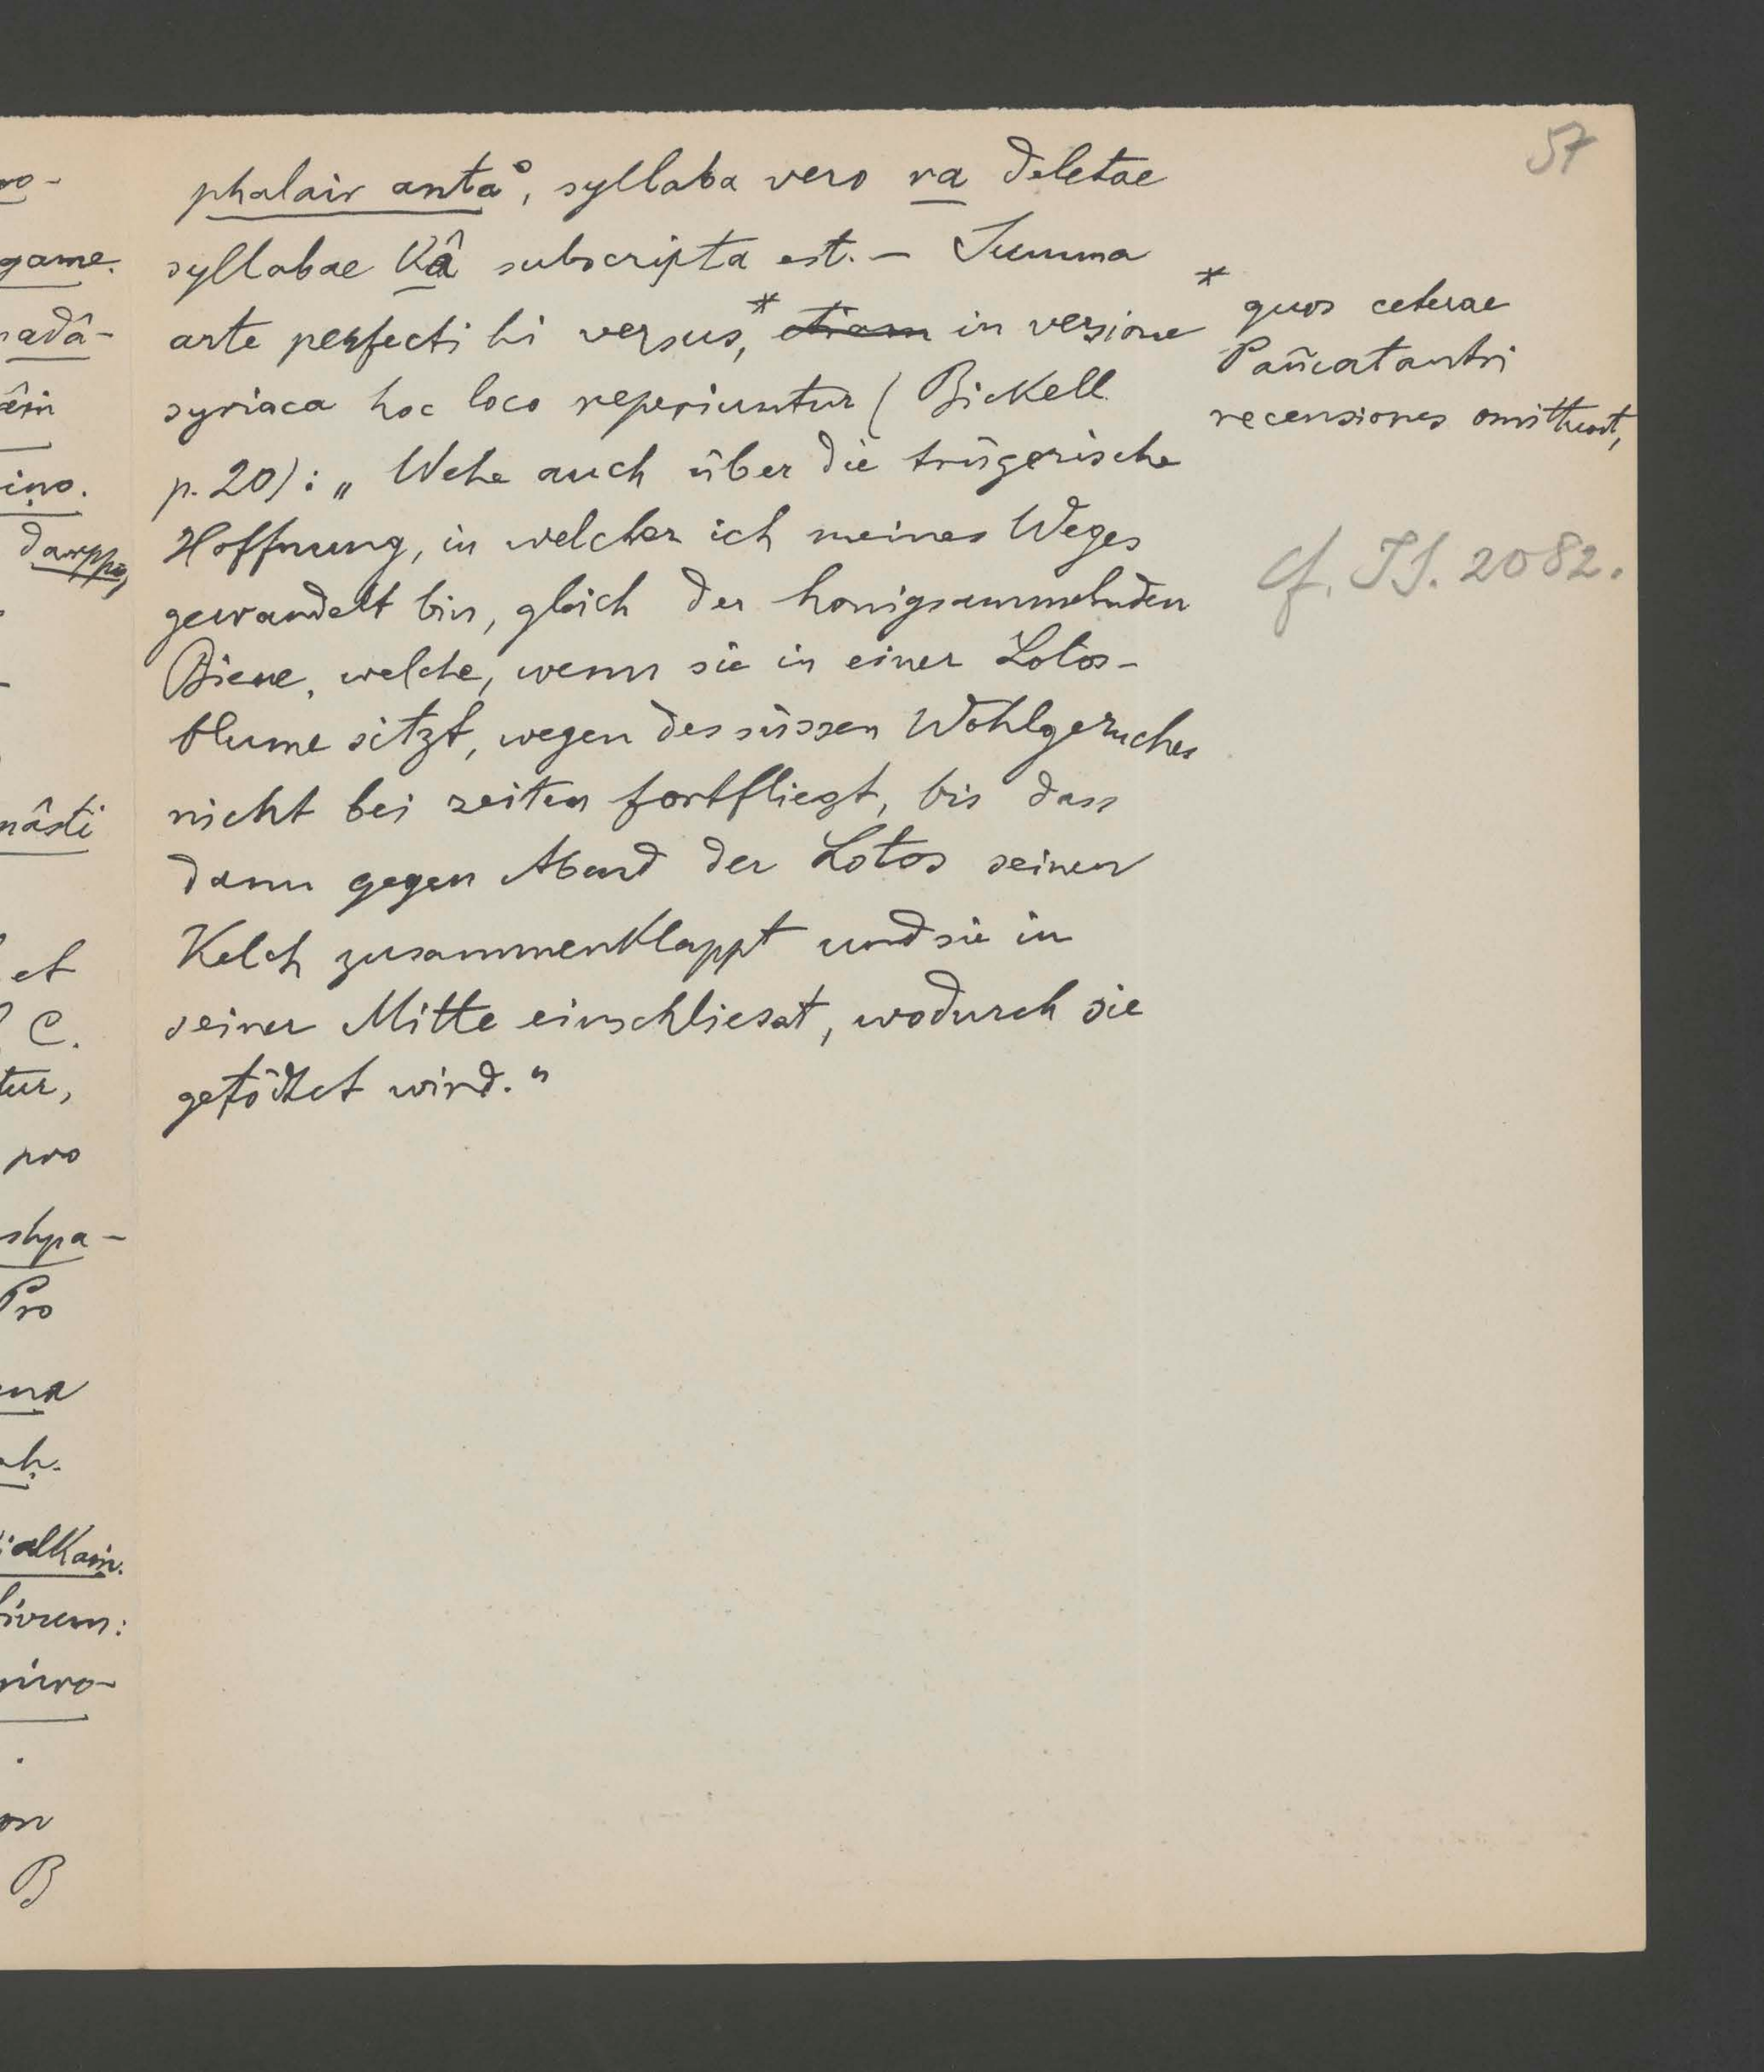 57
phalair anta°, syllaba vero va deletae
syllabae kâ subscripta est. – Summa
arte perfecti hi versus,* etiam in versione
syriaca hoc loco reperiuntur (Bickell
p. 20): „Wehe auch über die trügerische
Hoffnung, in welcher ich meines Weges
gewandelt bin, gleich der honigsammelnden
Biene, welche, wenn sie in einer Lotos-
blume sitzt, wegen des süssen Wohlgeruches
nicht bei zeiten fortfliegt, bis dass
dann gegen Abend der Lotos seinen
Kelch zusammenklappt und sie in
seiner Mitte einschliesst, wodurch sie
getödtet wird."
* quos ceterae
Pañcatantri
recensiones omittunt,
cf. IS. 2082.
game.
nadâ-
ino.
nâsti
et
C.
tur,
pro
shpa-
Pro
ena
niro-
on
B